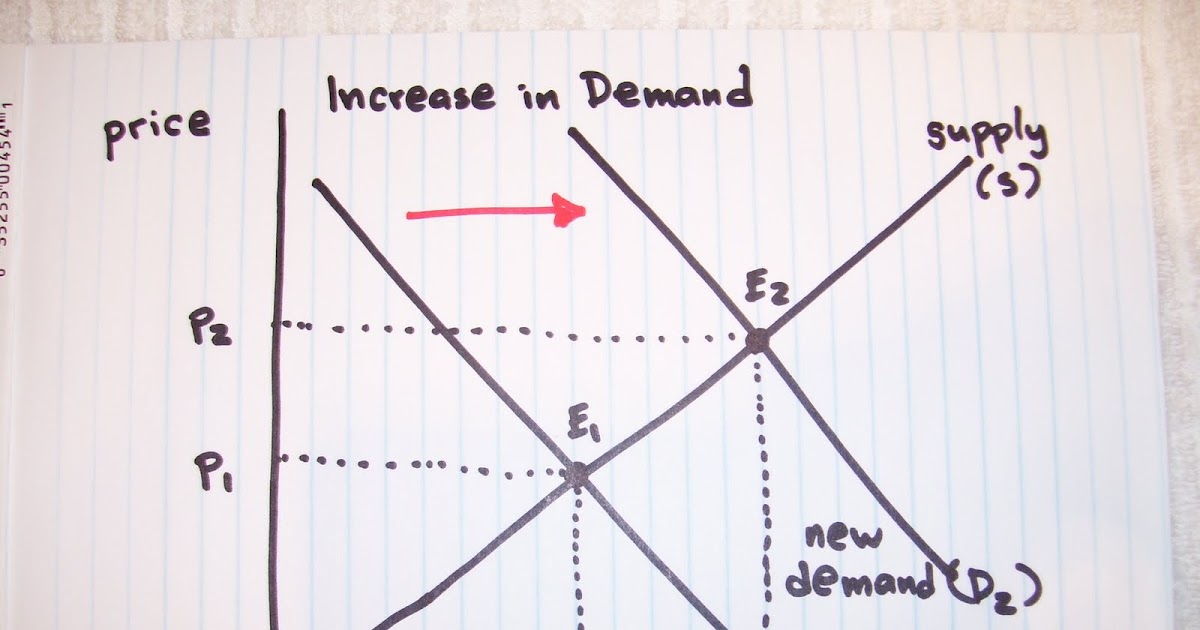 Increase in Demand
price
supply
(S)
E2
P2
E1
P1
new
demand (D2)